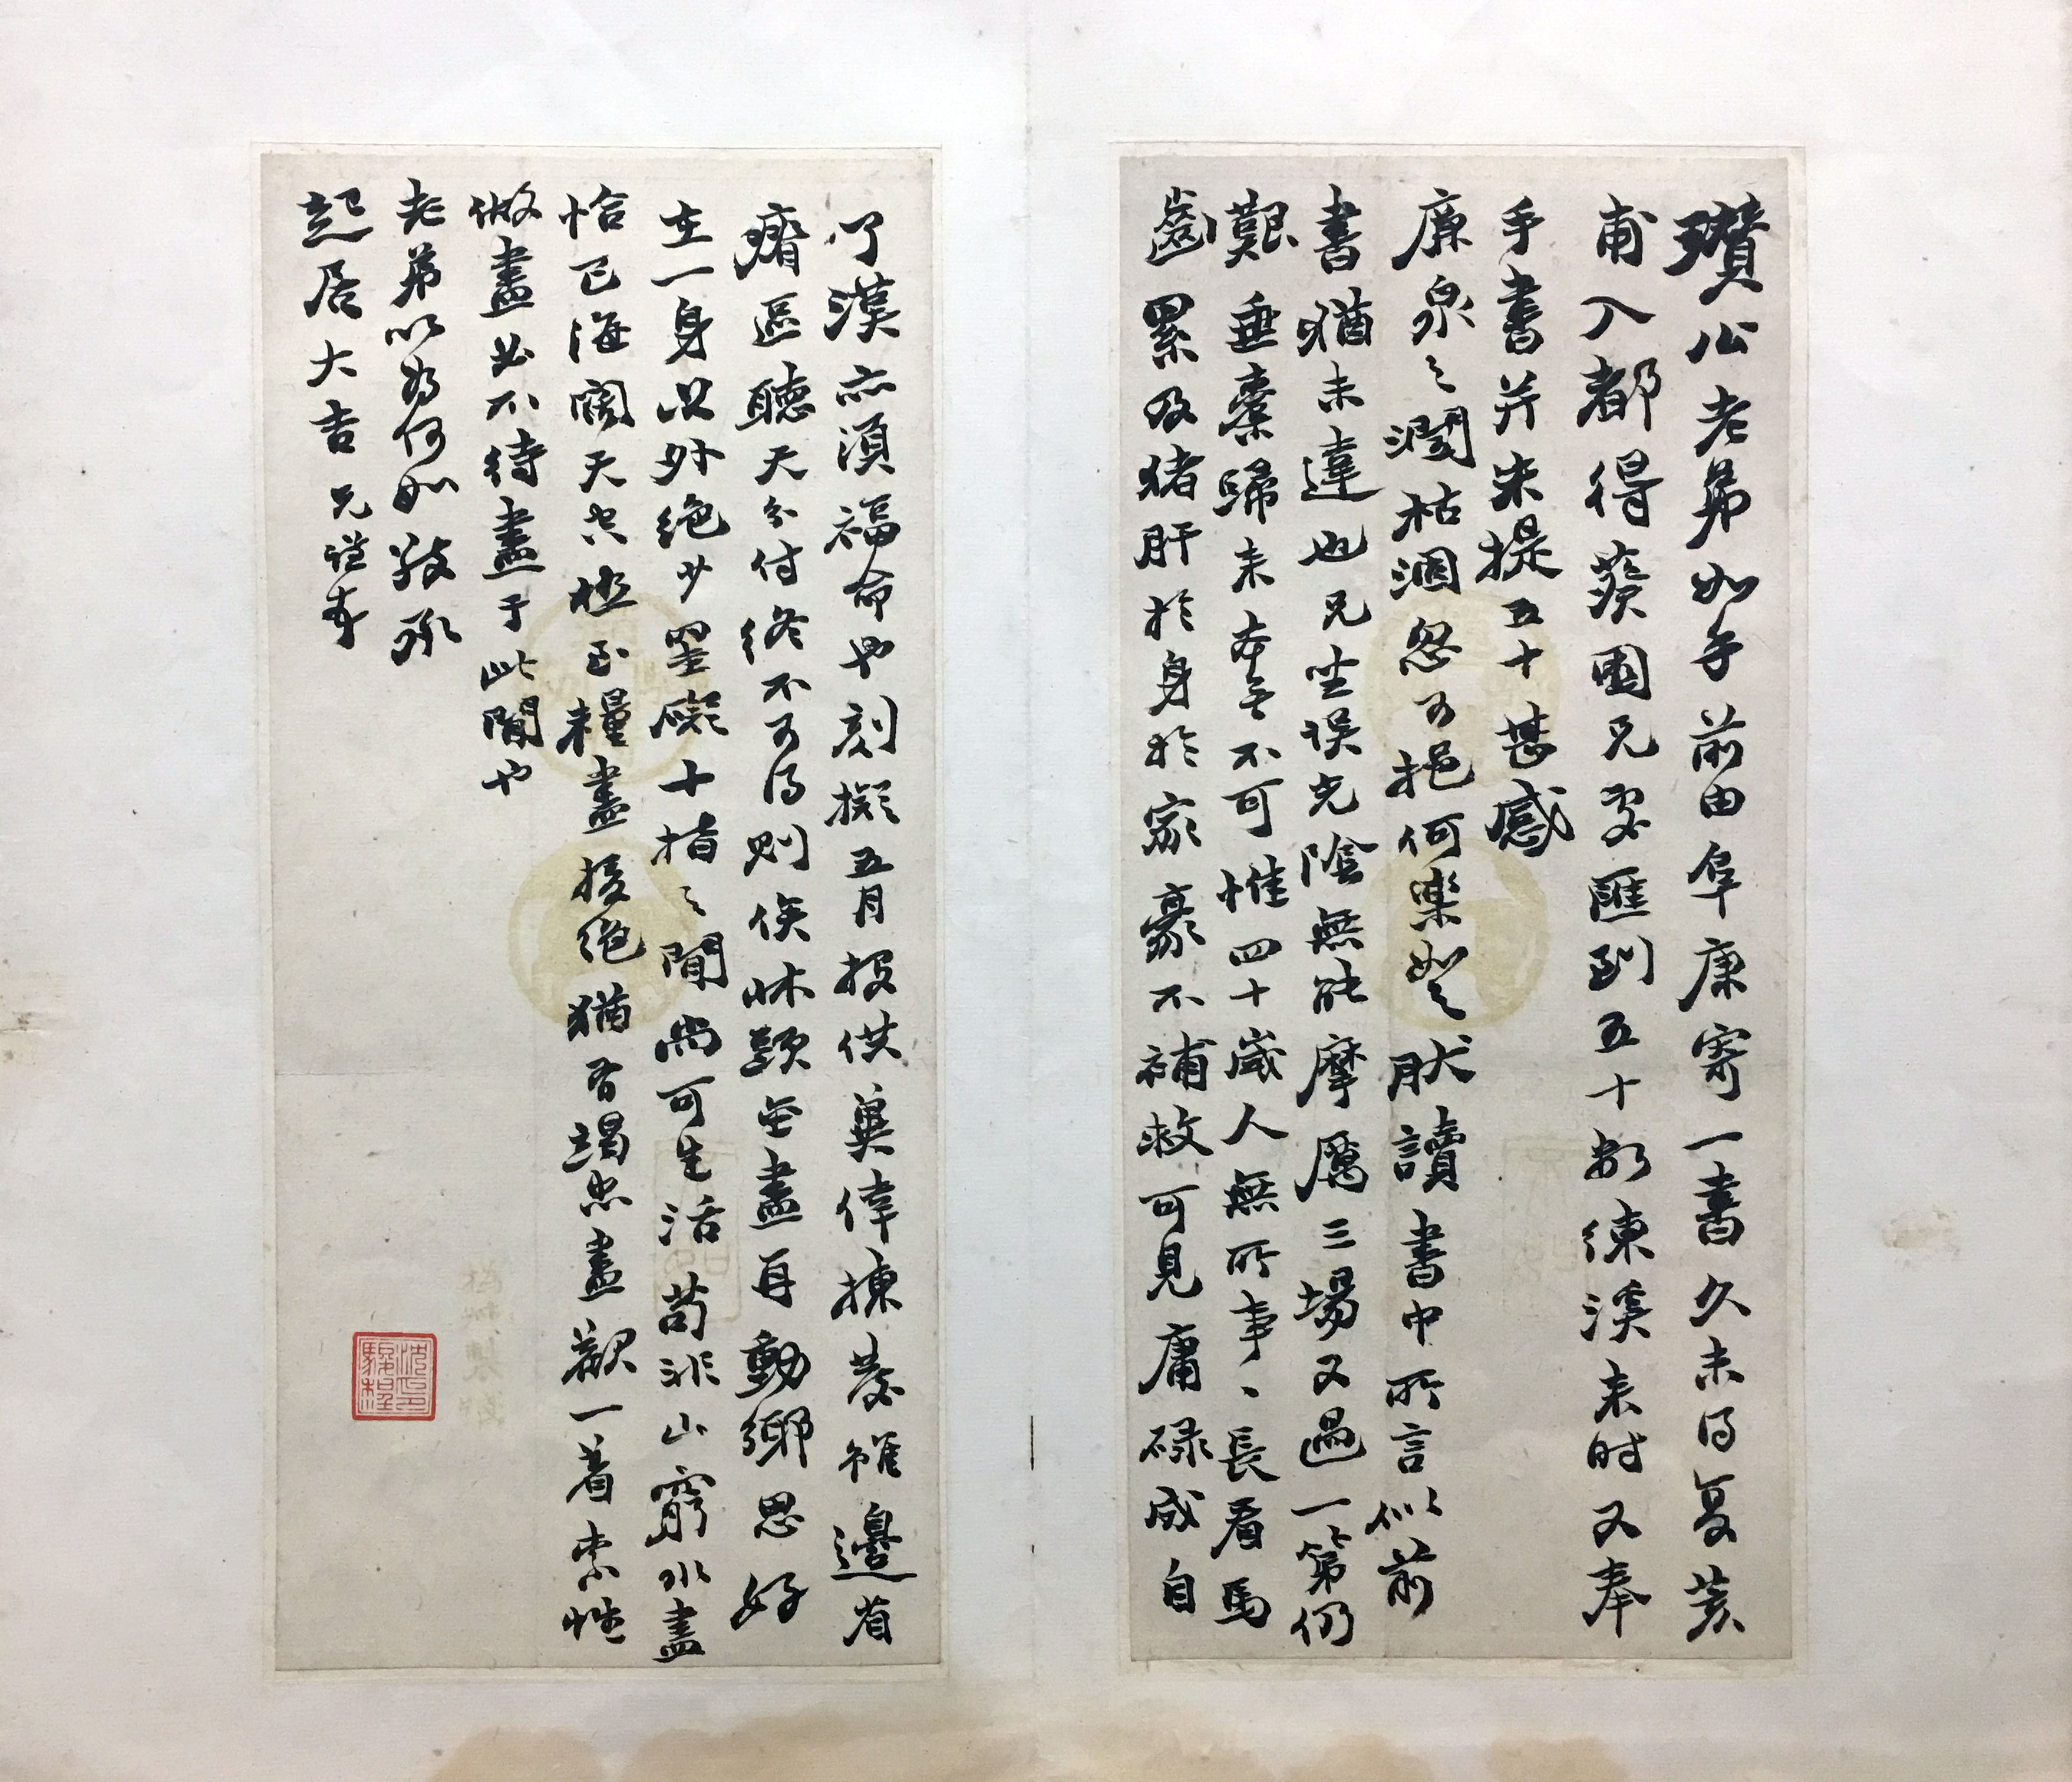 瓚公老弟如手前由阜康寄一書久未得复茇
甫入都得葵園兄寄匯到五十敬練溪来时又奉
手書并朱提五十甚感
廉泉之潤枯涸忽可挹何樂如之肰讀書中所言似前
書猶未達也兄坐误光陰無能摩厲三場又過一第仍
艱垂橐歸来本無不可惟四十歲人無所事、長看馬
齒累及猪肝於身於家豪不補救可見庸碌成自
了漢亦須福命也刻擬五月投供冀倖揀發雖邊省
瘠區聽天分付終不可得則俟牀頭金盡再動鄉思好
在一身以外絕少罣礙十指之間尚可生活苟非山窮水盡
恰已海闊天空極至糧盡援绝猶有竭忠盡歡一着索性
做盡必不待盡于此間也
老弟以为何如敬承
起居大吉兄